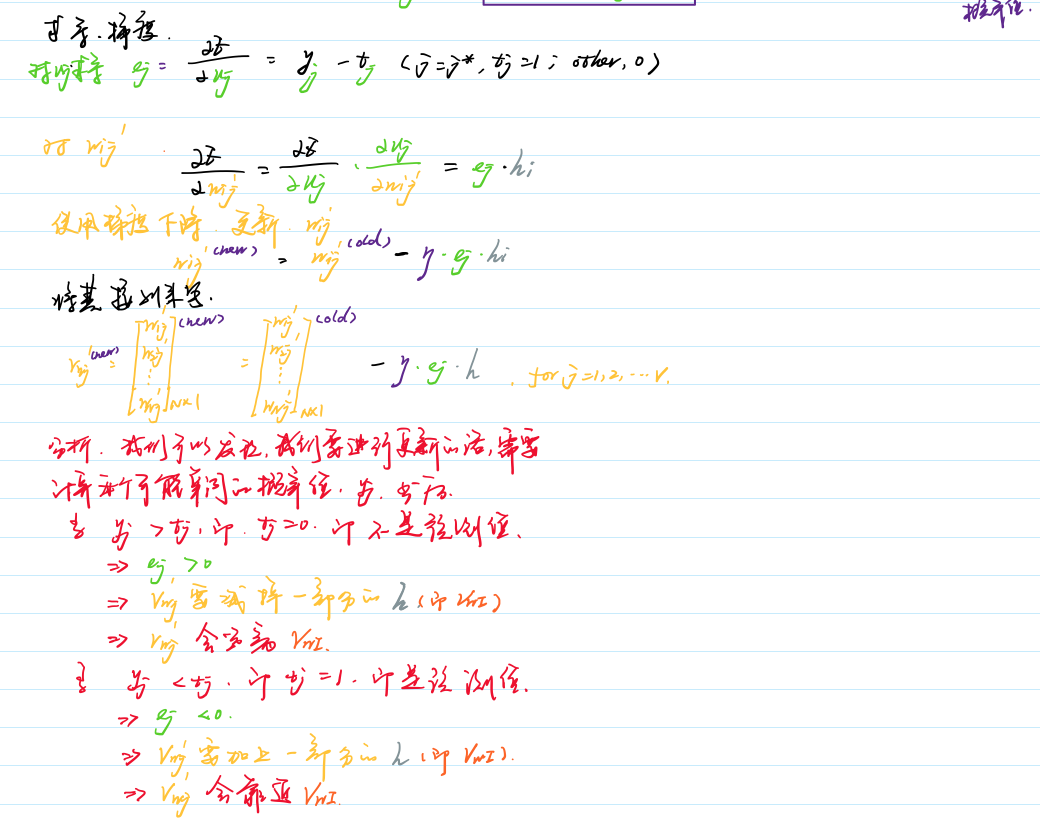 概率值.
其导.梯度.
对uj求导 ej = ∂E/∂uj = yj - tj (j=j*, tj=1; other, 0)
对 wij'
∂E/∂wij' = ∂E/∂uj · ∂uj/∂wij' = ej · hi
使用梯度下降.更新. wij'
wij'(new) = wij'(old) - η · ej · hi
将其按列来写.
vwj'(new) = [w1j' w2j' ⋮ wNj']N×1 (new) = [w1j' w2j' ⋮ wNj']N×1 (old) - η · ej · h . for j=1,2,…V.
分析. 我们可以发现,我们要进行更新的话,需要
计算每个可能单词的概率值. yj.
yj > tj, 即. tj=0. 即不是预测值.
⇒ ej > 0
⇒ Vwj' 要减掉一部分的 h (即 VwI)
⇒ Vwj' 会远离 VwI.
yj < tj. 即 tj = 1. 即是预测值.
⇒ ej < 0.
⇒ Vwj' 要加上一部分的 h (即 VwI).
⇒ Vwj' 会靠近 VwI.